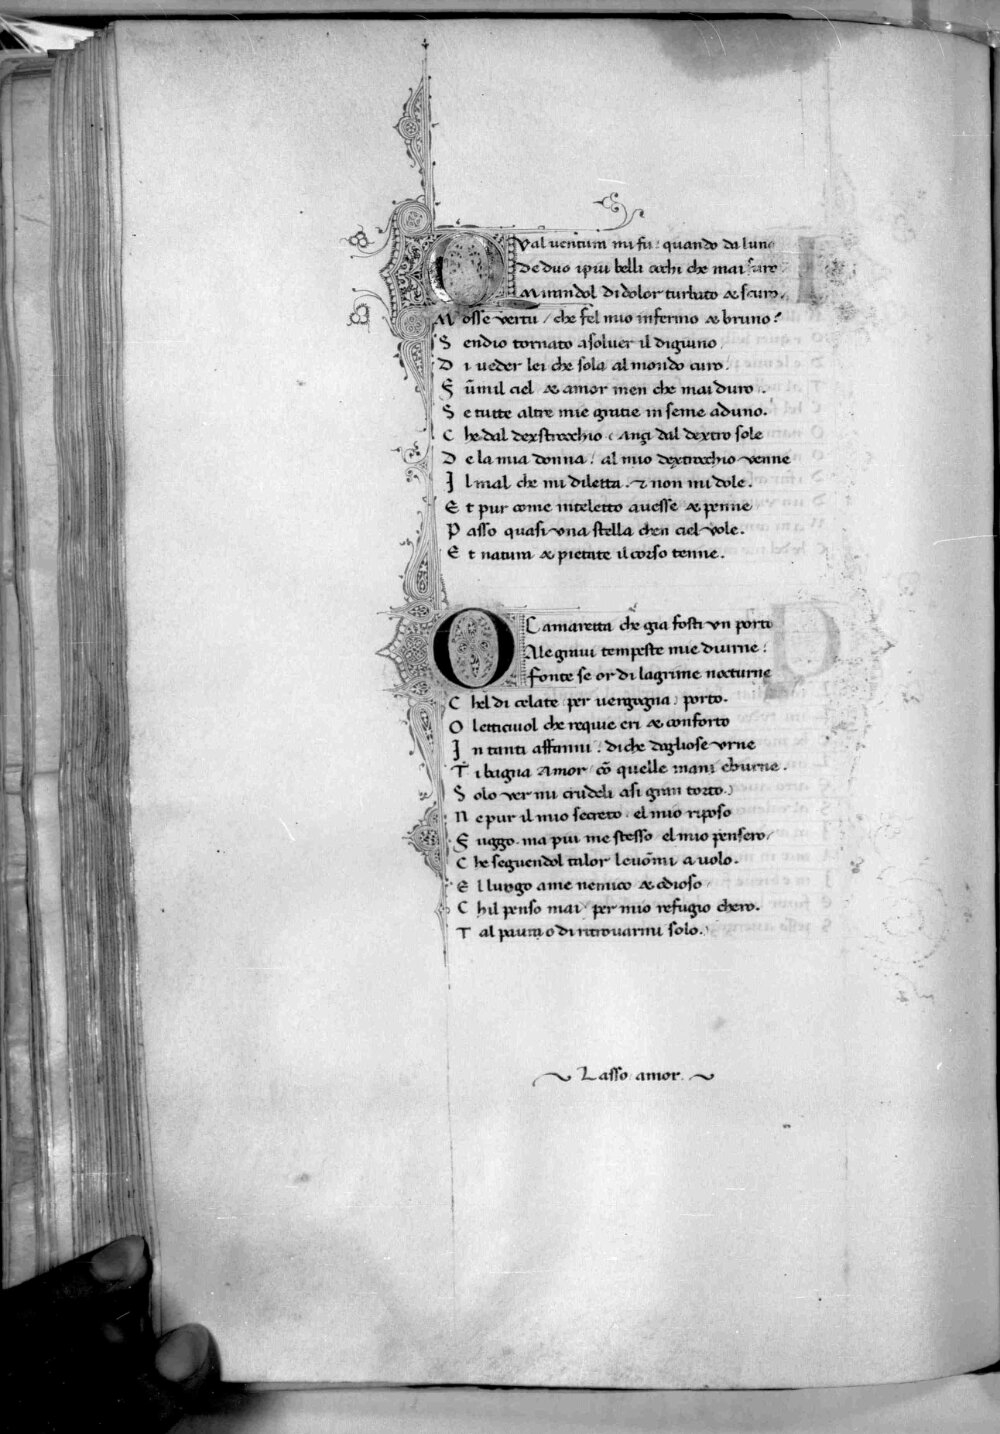 Qual uentura mi fu quando da luno
De duo i piu belli occhi che mai furo
Mirandol di dolor turbato & scuro.
Mosse vertu / che fel mio infermo & bruno?
Sendio tornato a soluer il digiuno
Di ueder lei che sola al mondo curo.
Fūmil ciel & amor men che mai duro.
Se tutte altre mie gratie inseme aduno.
Che dal dexstrocchio: Anzi dal dextro sole
De la mia donna: al mio dextrocchio venne
Il mal che mi diletta. & non mi dole.
Et pur come intelletto auesse & penne
Passo quasi vna stella chen ciel vole.
Et natura & pietate il corso tenne.
O Camaretta che gia fosti vn porto
Ale graui tempeste mie diurne:
Fonte se or di lagrime nocturne
Chel di celate per uergogna porto.
O letticiuol che requie eri & conforto
In tanti affanni: di che dogliose vrne
Ti bagna Amor cō quelle mani eburne.
Solo ver mi crudeli a si gran torto.
Ne pur il mio secreto: el mio riposo
Fuggo. ma piu me stesso el mio pensero
Che seguendol talor leuōmi a uolo.
El luvgo a me nemico & odioso
Chil penso mai per mio refugio chero.
Tal paura o di ritrouarmi solo.
Lasso amor.